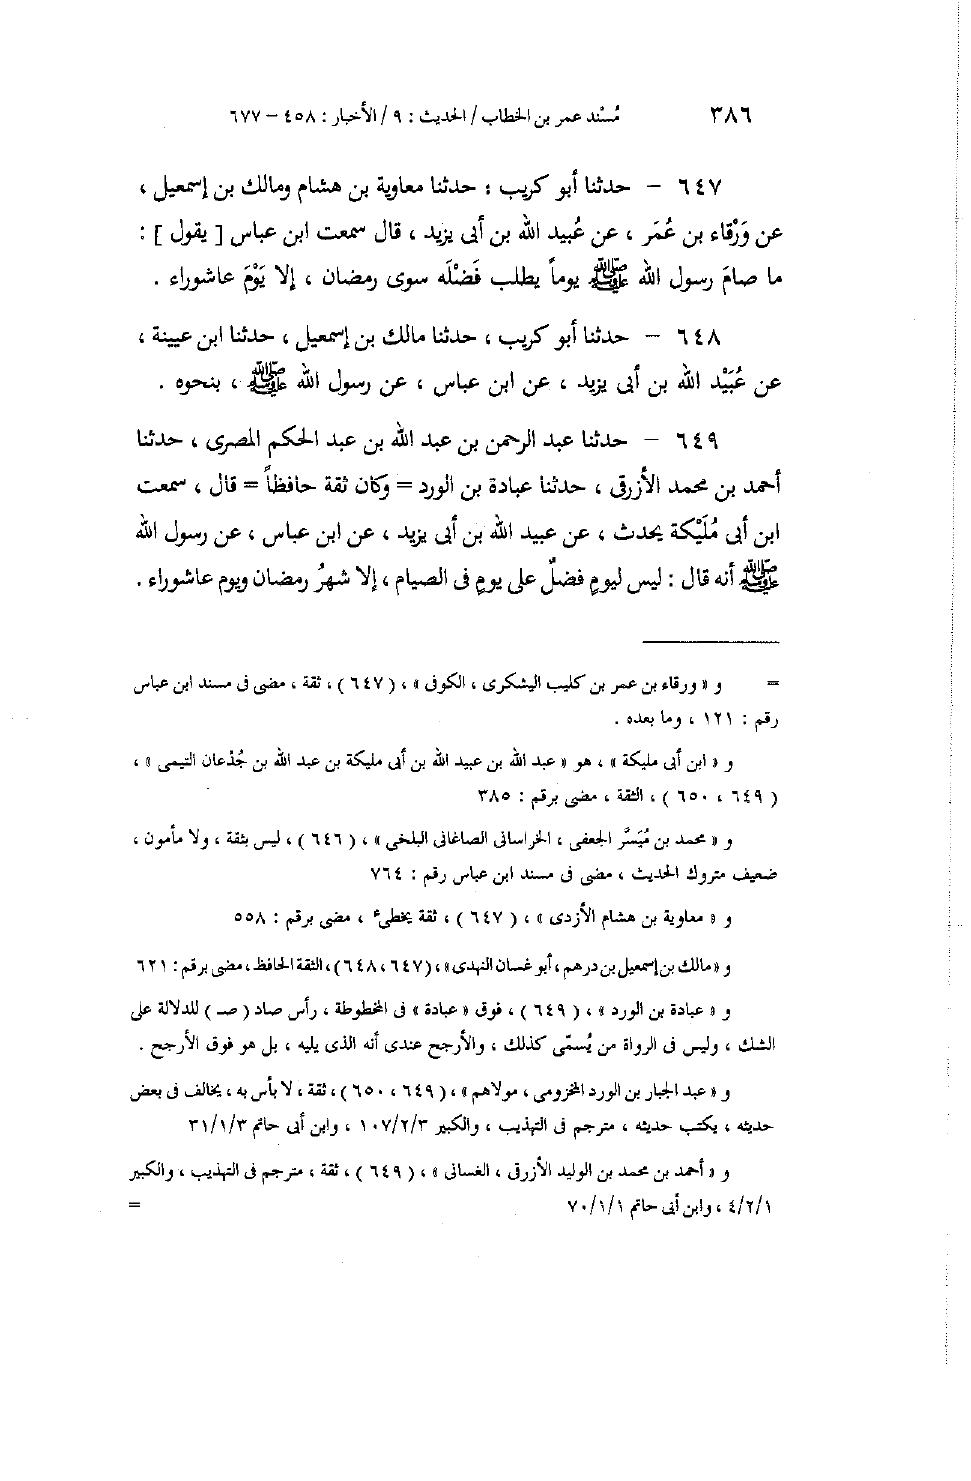 ٣٨٦ مُسْند عمر بن الخطاب / الحديث : ٩ / الأخبار : ٤٥٨ – ٦٧٧
٦٤٧ – حدثنا أبو كريب ؛ حدثنا معاوية بن هشام ومالك بن إسمعيل ،
عن وَرْقاء بن عُمَر ، عن عُبيد الله بن أبى يزيد ، قال سمعت ابن عباس [ يقول ] :
ما صامَ رسول الله ﷺ يوماً يطلب فَضْلَه سوى رمضان ، إلا يَوْمَ عاشوراء .
٦٤٨ – حدثنا أبو كريب ، حدثنا مالك بن إسمعيل ، حدثنا ابن عيينة ،
عن عُبَيْد الله بن أبى يزيد ، عن ابن عباس ، عن رسول الله ﷺ ، بنحوه .
٦٤٩ – حدثنا عبد الرحمن بن عبد الله بن عبد الحكم المصرى ، حدثنا
أحمد بن محمد الأزرقى ، حدثنا عبادة بن الورد = وكان ثقة حافظاً = قال ، سمعت
ابن أبى مُلَيْكة يحدث ، عن عبيد الله بن أبى يزيد ، عن ابن عباس ، عن رسول الله
ﷺ أنه قال : ليس ليومٍ فضلٌ على يومٍ فى الصيام ، إلا شهرُ رمضان ويوم عاشوراء .
= و « ورقاء بن عمر بن كليب اليشكرى ، الكوفى » ، ( ٦٤٧ ) ، ثقة ، مضى فى مسند ابن عباس
رقم : ١٢١ ، وما بعده .
و « ابن أبى مليكة » ، هو « عبد الله بن عبيد الله بن أبى مليكة بن عبد الله بن جُدْعان التيمى » ،
( ٦٤٩ ، ٦٥٠ ) ، الثقة ، مضى برقم : ٣٨٥
و « محمد بن مُيَسَّر الجعفى ، الخراسانى الصاغانى البلخى » ، ( ٦٤٦ ) ، ليس بثقة ، ولا مأمون ،
ضعيف متروك الحديث ، مضى فى مسند ابن عباس رقم : ٧٦٤
و « معاوية بن هشام الأزدى » ، ( ٦٤٧ ) ، ثقة يخطىء ، مضى برقم : ٥٥٨
و « مالك بن إسمعيل بن درهم ، أبو غسان النهدى » ، ( ٦٤٧ ، ٦٤٨ ) ، الثقة الحافظ ، مضى برقم : ٦٢١
و « عبادة بن الورد » ، ( ٦٤٩ ) ، فوق « عبادة » فى المخطوطة ، رأس صاد ( صـ ) للدلالة على
الشك ، وليس فى الرواة من يُسمّى كذلك ، والأرجح عندى أنه الذى يليه ، بل هو فوق الأرجح .
و « عبد الجبار بن الورد المخزومى ، مولاهم » ، ( ٦٤٩ ، ٦٥٠ ) ، ثقة ، لا بأس به ، يخالف فى بعض
حديثه ، يكتب حديثه ، مترجم فى التهذيب ، والكبير ١٠٧/٢/٣ ، وابن أبى حاتم ٣١/١/٣
و « أحمد بن محمد بن الوليد الأزرقى ، الغسانى » ، ( ٦٤٩ ) ، ثقة ، مترجم فى التهذيب ، والكبير
٤/٢/١ ، وابن أبى حاتم ٧٠/١/١ =